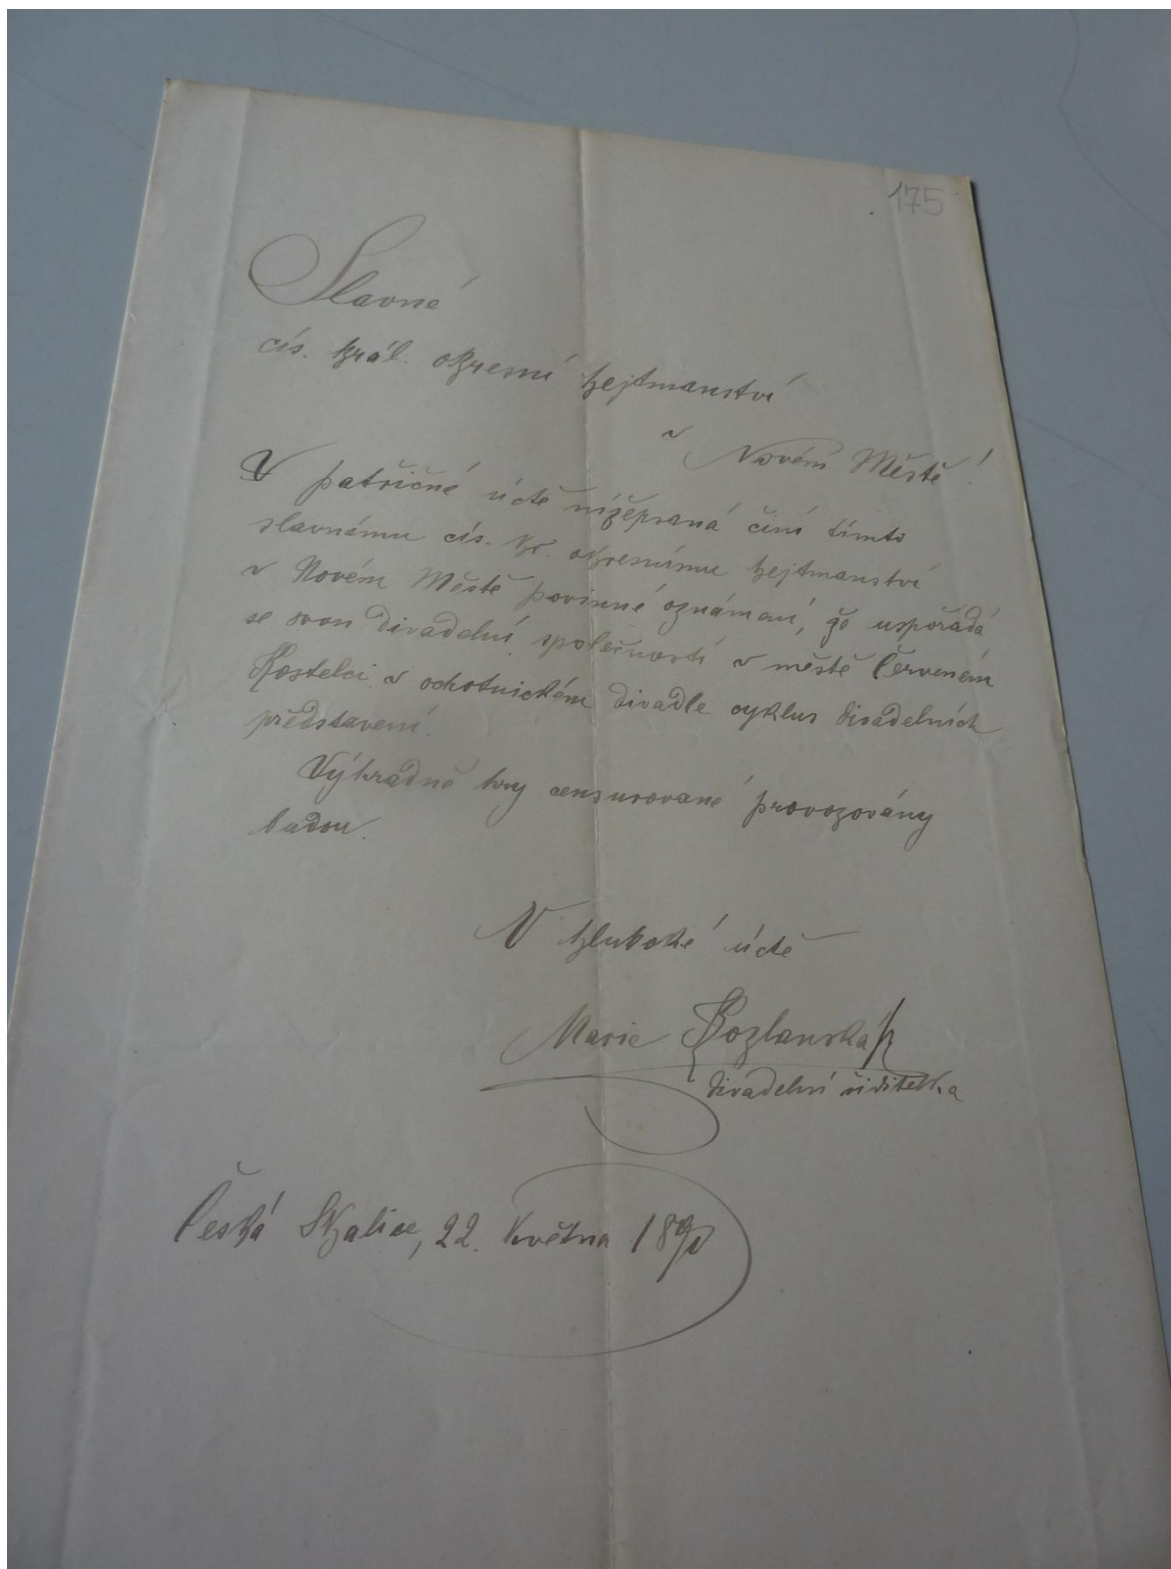 175
Slavné
cís. král. okresní hejtmanství
v Novém Městě!
V patřičné úctě nížepsaná činí tímto
slavnému cís. kr. okresnímu hejtmanství
v Novém Městě povinné oznámení, že uspořádá
se svou divadelní společností v městě Červeném
Kostelci v ochotnickém divadle cyklus divadelních
představení.
Výhradně hry censurované provozovány
budou.
V hluboké úctě
Marie Kozlanská
divadelní řiditelka
Česká Skalice, 22. května